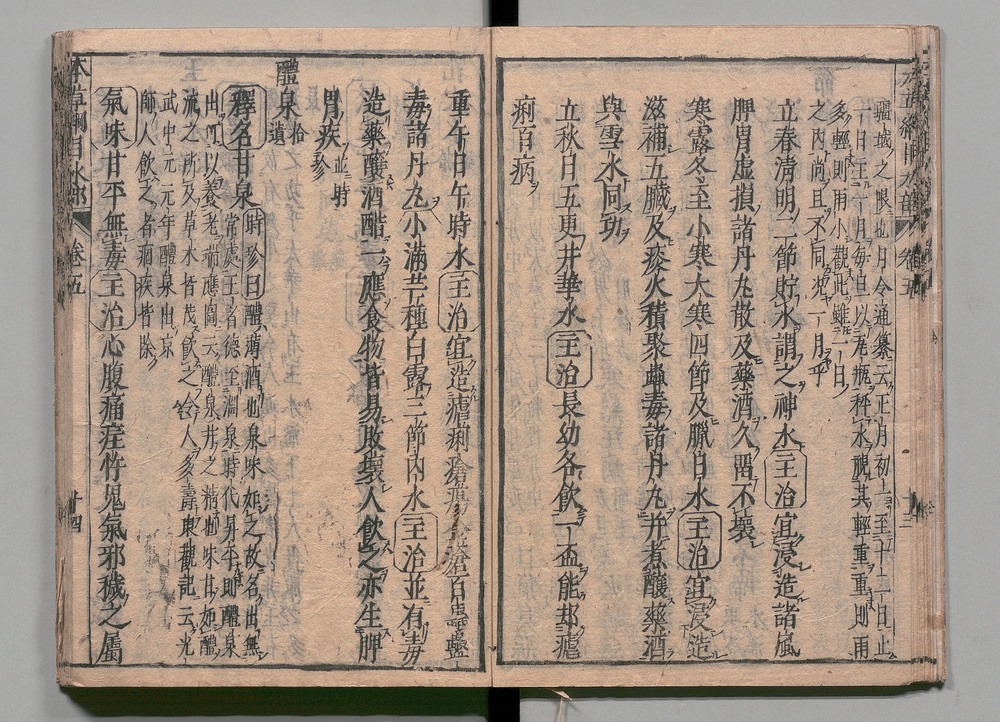 疆域之限也月令通纂云正月初一至十二日止
一日主一月每旦以瓦瓶秤水視其輕重重則雨
多輕則旱用小觀此雖一日
之内尚且不同況一月乎
立春清明二節貯水謂之神水主治宜浸造諸風
脾胃虚損諸丹丸散及藥酒久畱不壞
寒露冬至小寒大寒四節及臘日水主治宜浸造
滋補五臟及痰火積聚蟲毒諸丹丸并煮釀藥酒
與雪水同功
立秋日五更井華水主治長幼各飲一盃能却瘧
痢百病
重午日午時水主治宜造瘧痢瘡瘍金瘡百蟲蠱
毒諸丹丸小滿芒種白露三節内水主治並有毒
造藥釀酒醋一應食物皆易敗壞人飲之亦生脾
胃疾並時珍
醴泉拾遺
釋名甘泉時珍曰醴薄酒也泉味如之故名出無
常處王者德至淵泉時代昇平則醴泉
出可以養老瑞應圖云醴泉井之精也味甘如醴
流之所及草木皆茂飲之令人多壽東觀記云光
武中元元年醴泉出京
師人飲之者痼疾皆除
氣味甘平無毒主治心腹痛疰忤鬼氣邪穢之屬
本草綱目水部 卷五 十四
卷五 十三